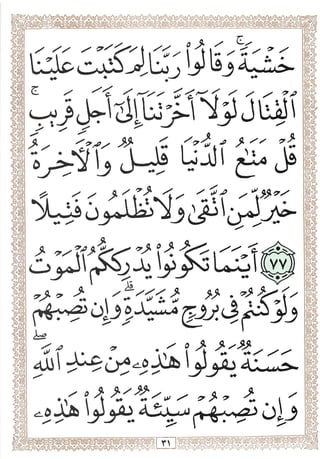 خَشۡيَةٗۚ وَقَالُواْ رَبَّنَا لِمَ كَتَبۡتَ عَلَيۡنَا
ٱلۡقِتَالَ لَوۡلَآ أَخَّرۡتَنَآ إِلَىٰٓ أَجَلٖ قَرِيبٖۗ
قُلۡ مَتَٰعُ ٱلدُّنۡيَا قَلِيلٞ وَٱلۡأٓخِرَةُ
خَيۡرٞ لِّمَنِ ٱتَّقَىٰ وَلَا تُظۡلَمُونَ فَتِيلًا
٧٧ أَيۡنَمَا تَكُونُواْ يُدۡرِككُّمُ ٱلۡمَوۡتُ
وَلَوۡ كُنتُمۡ فِي بُرُوجٖ مُّشَيَّدَةٖۗ وَإِن تُصِبۡهُمۡ
حَسَنَةٞ يَقُولُواْ هَٰذِهِۦ مِنۡ عِندِ ٱللَّهِۖ
وَإِن تُصِبۡهُمۡ سَيِّئَةٞ يَقُولُواْ هَٰذِهِۦ
٣١